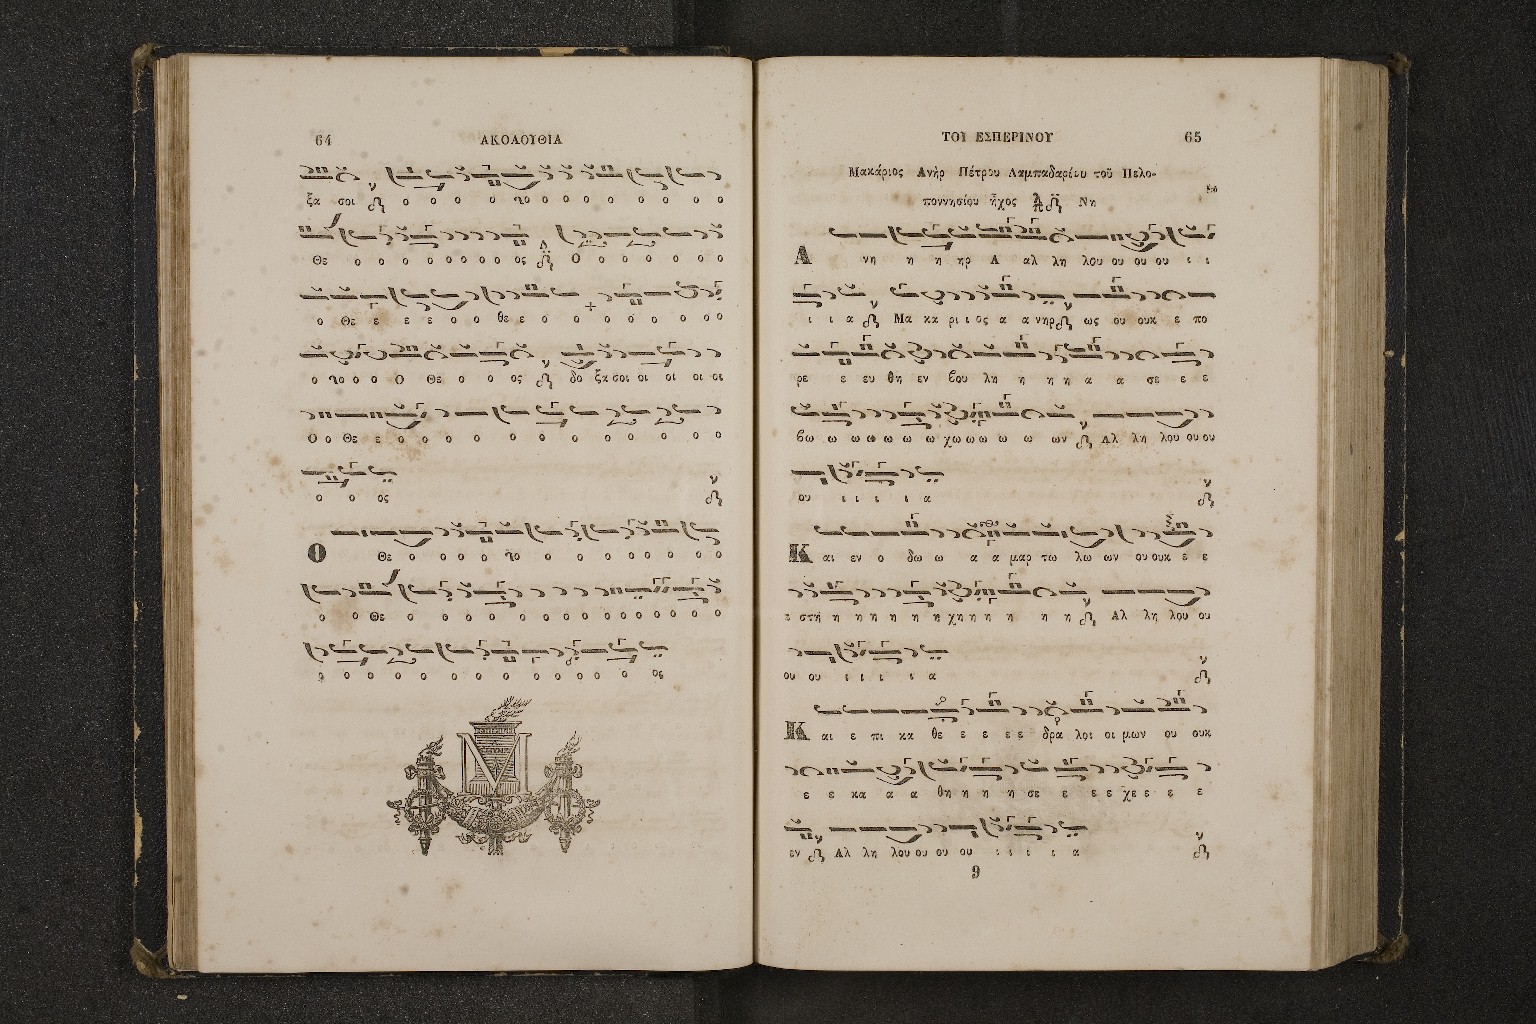 64 ΑΚΟΛΟΥΘΙΑ
ξα σοι ο ο ο ο ο ο ο ο ο ο ο ο
Θε ο ο ο ο ο ο ο ο ος Ο ο ο ο ο ο ο
ο Θε ε ε ε ο ο θε ε ο ο ο ο ο ο ο ο
ο ο ο Ο Θε ο ο ος δο ξα σοι οι οι οι οι
Ο ο Θε ε ο ο ο ο ο ο ο ο ο ο ο ο ο
ο ο ος
Ο Θε ο ο ο ο ο ο ο ο ο ο ο ο ο
ο ο Θε ο ο ο ο ο ο ο ο ο ο ο ο ο ο
ο ο ο ο ο ο ο ο ο ο ο ο ο ο ος
ΤΟΥ ΕΣΠΕΡΙΝΟΥ 65
Μακάριος Ανὴρ Πέτρου Λαμπαδαρίου τοῦ Πελο-
ποννησίου ἦχος Νη
Α νη η η ηρ Α αλ λη λου ου ου ου ι ι
ι ι α Μα κα ρι ι ος α α νηρ ως ου ουκ ε πο
ρε ε ευ θη εν βου λη η η η α α σε ε ε
βω ω ω ω ω ω ω χω ω ω ω ω ων Αλ λη λου ου ου
ου ι ι ι ι α
Και εν ο δω ω α α μαρ τω λω ων ου ουκ ε ε
ε στη η η η η η η χη η η η η η Αλ λη λου ου
ου ου ι ι ι ι α
Και ε πι κα θε ε ε ε ε δρα λοι οι μων ου ουκ
ε ε κα α α θη η η η σε ε ε ε χε ε ε ε
εν Αλ λη λου ου ου ου ι ι ι ι α
9